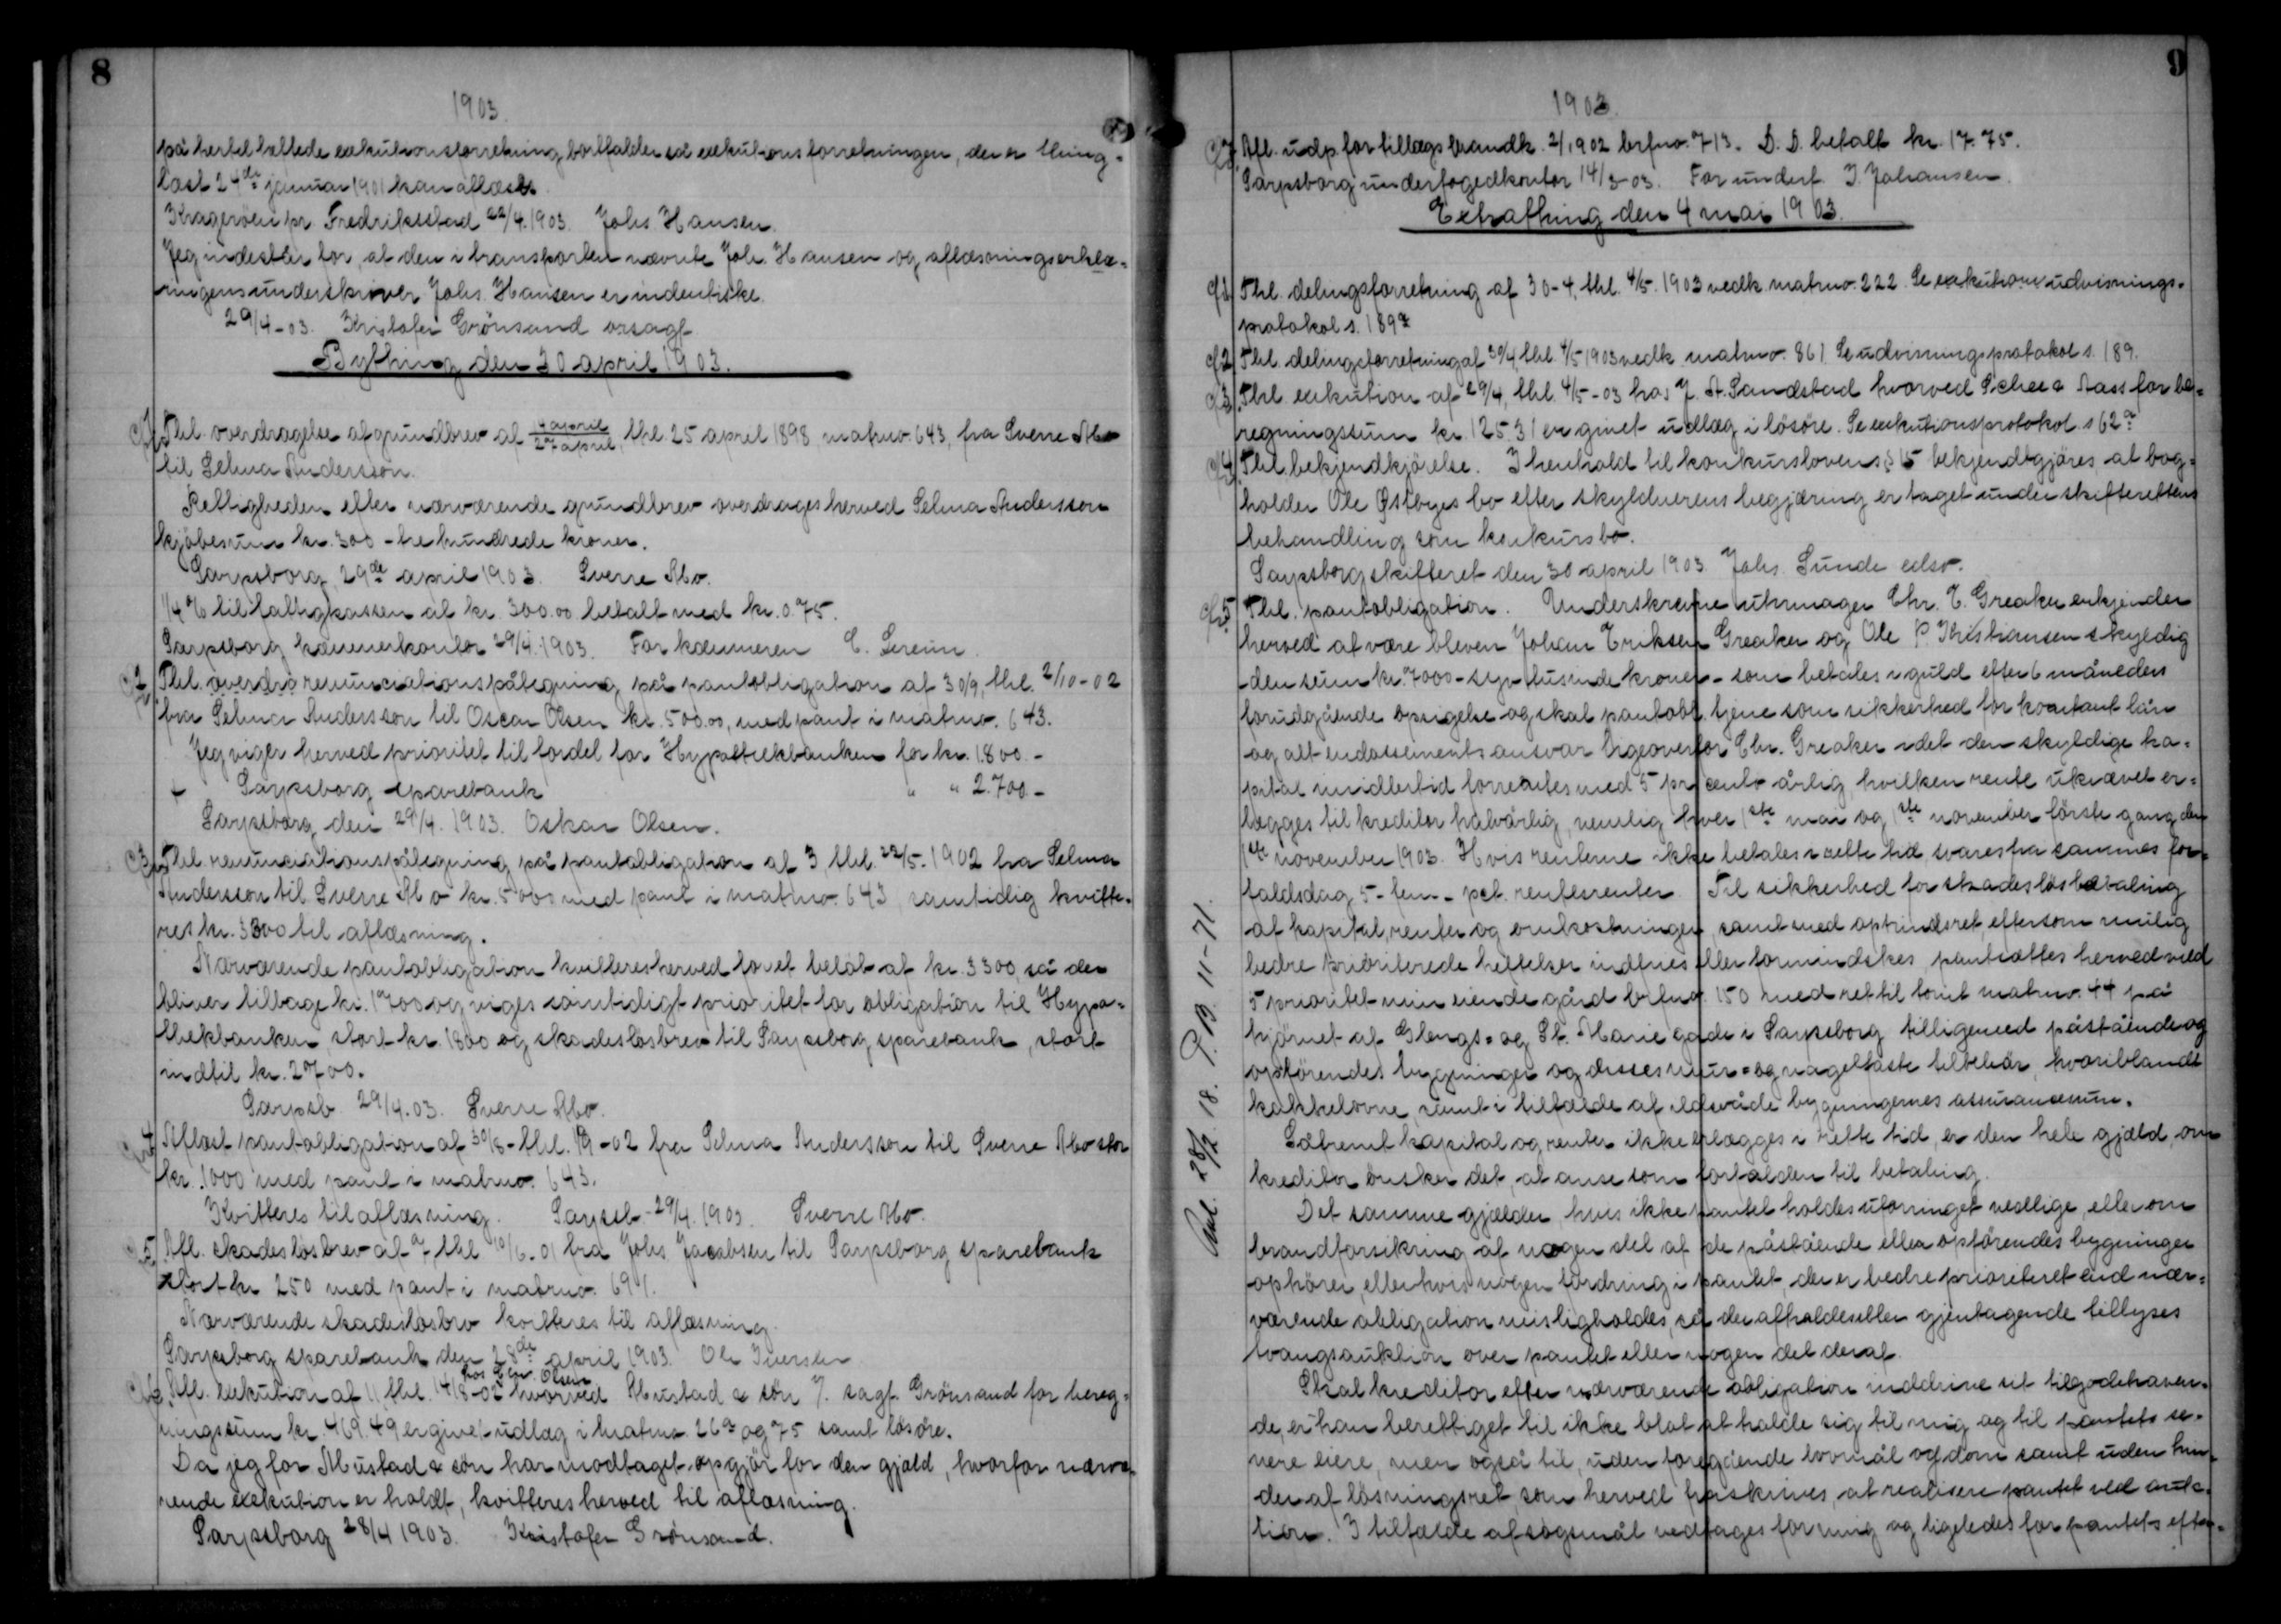 8
1903.
på hertil heftede exekutionsforretning bortfalder så exekutionsforretningen, der er thing-
læst 24de januar 1901 kan aflæses.
Kragerøen pr Fredriksstad 22/4 1903. Johs Hansen.
Jeg indestår for, at den i transporten nævnte Joh. Hansen og aflæsningserklæ-
ringens underskriver Johs. Hansen er indentiske.
29/4-03. Kristofer Grönsand orsagf.
Bything den 30 april 1903.
1. Thl. overdragelse af grundbrev af 14 april / 27 april, thl. 25 april 1898 matrno. 643, fra Sverre Mo
til Selma Andersson.
Rettigheden efter nærværende grundbrev overdrages herved Selma Andersson
kjøbesum kr. 300 - tre hundrede kroner.
Sarpsborg, 29de april 1903. Sverre Mo.
1/4 % til fattigkassen af kr. 300.00 betalt med kr. 0.75.
Sarpsborg kæmnerkontor 29/4 1903. For kæmneren E. Sereim.
2. Thl. renunciationspåtegning på pantobligation af 30/9, thl. 2/10-02
fra Selma Andersson til Oscar Olsen kr. 500.00, med pant i matrno. 643.
Jeg viger herved prioritet til fordel for Hypothekbanken for kr. 1.800.-
+ Sarpsborg sparebank " " 2.700.-
Sarpsborg, den 29/4. 1903. Oskar Olsen.
3. Thl. renunciationspåtegning på pantobligation af 3, thl. 22/5-1902 fra Selma
Andersson til Sverre Mo kr. 5000 med pant i matrno. 643, samtidig kvitte-
res kr. 3300 til aflæsning.
Nærværende pantobligation kvitteres herved for et beløb af kr. 3300, så der
bliver tilbage kr. 1700 og viges samtidigt prioritet for obligation til Hypo-
thekbanken, stort kr. 1800 og skadesløsbrev til Sarpsborg sparebank, stort
indtil kr. 2700.
Sarpsb. 29/4.03. Sverre Mo.
4. Aflæst pantobligation af 30/8 - thl. 1/9-02 fra Selma Andersson til Sverre Mo stor
kr. 1000 med pant i matrno. 643.
Kvitteres til aflæsning. Sarpsb - 29/4. 1903. Sverre Mo.
5. Afl. skadesløsbrev af 7, thl 10/6-01 fra Johs Jacobsen til Sarpsborg sparebank
stort kr 250 med pant i matrno. 691.
Nærværende skadesløsbrev kvitteres til aflæsning.
Sarpsborg sparebank den 28de april 1903. Ole Iversen
hos Chr. Olsen
6. Afl. exekution af 11, thl. 14/8-02 hvorved Mustad & sön v. sagf. Grönsand for bereg-
ningssum kr. 469.49 er givet udlæg i matrno. 26a og 75 samt løsöre.
Da jeg for Mustad & sön har modtaget opgjör for den gjæld, hvorfor nærvæ-
rende exekution er holdt, kvitteres herved til aflæsning.
Sarpsborg 28/4 1903. Kristofer Grönsand.
9
1903.
7. Afl. udp. for tillægs brandk. 2/1902 brfno. 713. D. D. betalt kr. 17.75.
Sarpsborg underfogedkontor 14/3-03. For underf. J. Johansen.
Extrathing den 4 mai 1903.
1. Thl. delingsforretning af 30-4, thl. 4/5. 1903 vedk. matrno. 222. Se exekutions udvisnings-
protokol s. 189a
2. Thl. delingsforretning af 30/4, thl. 4/5 1903 vedk. matrno. 861. Se udvisningsprotokol s. 189.
3. Thl. exekution af 29/4, thl. 4/5-03 hos J. A. Sandstad hvorved Schee & Aass for be-
regningssum kr. 125.31 er givet udlæg i lösöre. Se exekutionsprotokol s 62a
4. Thl. bekjendtgjörelse. I henhold til konkurslovens § 15 bekjendtgjöres, at bog-
holder Ole Østbyes bo efter skyldnerens begjæring er taget under skifterettens
behandling som konkursbo.
Sarpsborg skifteret den 30 april 1903. Johs. Sunde edsv.
5. Thl. pantobligation. Underskrevne uhrmager Chr. E. Greaker erkjender
herved at være bleven Johan Eriksen Greaker og Ole P. Kristiansen skyldig
den sum kr. 7000 - syv tusinde kroner - som betales i guld efter 6 måneders
forudgående opsigelse og skal pantobl. tjene som sikkerhed for kontant lån
og alt endossementsansvar ligeoverfor Chr. Greaker idet den skyldige ka-
pital imidlertid forrentes med 5 pr cent årlig, hvilken rente ukrævet er-
lægges til kreditor halvårlig, nemlig hver 1ste mai og 1ste november første gang den
1ste november 1903. Hvis renterne ikke betales i rette tid, svares fra sammes for-
faldsdag 5 - fem - pct. rentesrenter. Til sikkerhed for skadeslös betaling
af kapital, renter og omkostninger, samt med oprindsret, eftersom mulig
bedre prioriterede heftelser indfries eller formindskes, pantsættes herved med
5 prioritet min eiende gård brfno. 150 med ret til tomt matrno. 44 på
hjörnet af Glengs- og St. Marie gade i Sarpsborg tilligemed påstående og
opförendes bygninger og disses mur- og nagelfaste tilbehör, hvoriblandt
kakkelovne, samt i tilfælde af ildsvåde bygningernes assurancesum.
Såfremt kapital og renter ikke erlægges i rette tid, er den hele gjæld, om
kreditor ønsker det, at anse som forfalden til betaling.
Det samme gjælder, hvis ikke pantet holdes uforringet vedlige, eller om
brandforsikring af nogen del af de påstående eller opförendes bygninger
ophörer, eller hvis nogen fordring i pantet, der er bedre prioriteret end nær-
værende obligation misligholdes, så der afholdes eller gjentagende tillyses
tvangsauktion over pantet eller nogen del deraf.
Skal kreditor efter nærværende obligation inddrive sit tilgodehaven-
de, er han berettiget til ikke blot at holde sig til mig og til pantets se-
nere eiere, men også til, uden foregående lovmål og dom samt uden hin-
der af lösningsret, som herved fraskrives, at realisere pantet ved auk-
tion. I tilfælde af sögsmål vedtages for mig og ligeledes for pantets efter-
Avl. 28/2. 18. P. B. 11-71.